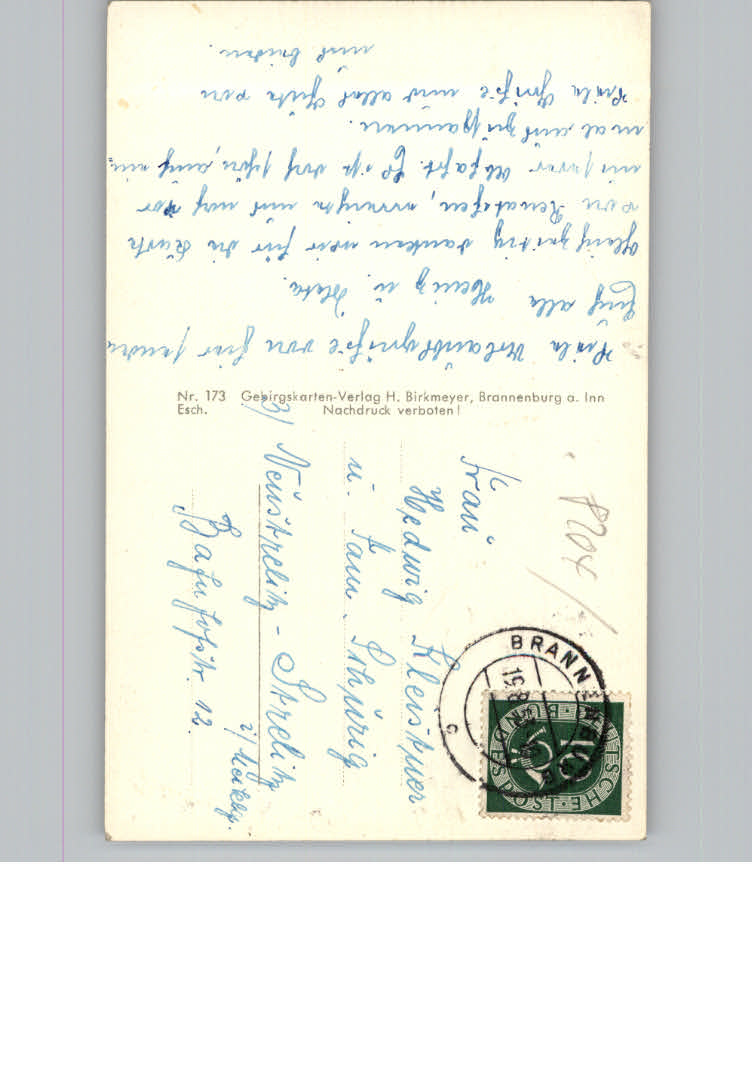 Viele Urlaubsgrüße von hier senden
Euch alle Heinz u. Käte.
Gleichzeitig danken wir für die Karte
von Renatchen, welche uns noch vor
unserer Abfahrt. Es ist doch schön, auch ein-
mal auszuspannen.
Viele Grüße und alles Gute von
uns beiden.
Nr. 173 Gebirgskarten-Verlag H. Birkmeyer, Brannenburg a. Inn
Esch. Nachdruck verboten!
Frau
Hedwig Kleistner
u. Fam. Schürig
3) Neustrelitz-Strelitz
i/Meckbg.
Bahnhofstr. 12.
BRANNENBURG
DEUTSCHE BUNDESPOST
15